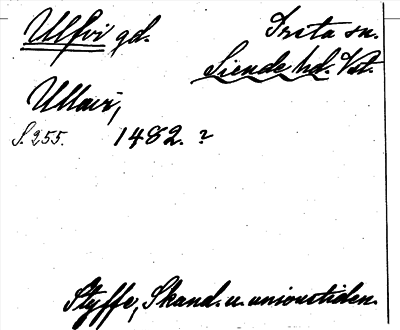 Ullvi gd. Irsta sn.
Siende hd. Vst.
Ullavi,
S. 255. 1482. ?
Styffe, Skand. u. unionstiden.